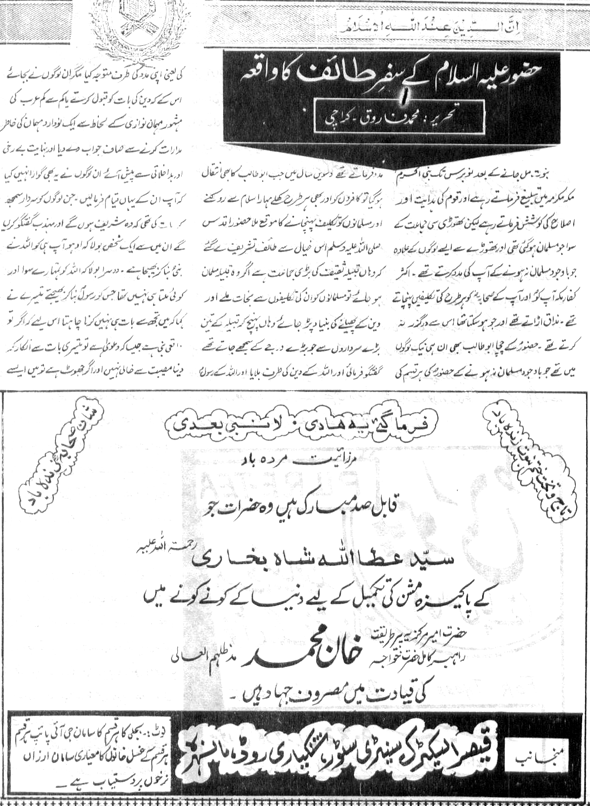 ان الدین عند اللہ الاسلام
حضور علیہ السلام کے سفر طائف کا واقعہ
تحریر : محمد فاروق ۔ کراچی
نبوت مل جانے کے بعد نو برس تک نبی اکرم
مکہ مکرمہ میں تبلیغ فرماتے رہے اور قوم کی ہدایت اور
اصلاح کی کوشش فرماتے رہے لیکن تھوڑی سی جماعت کے
سوا جو مسلمان ہو گئی تھی اور تھوڑے سے ایسے لوگوں کے علاوہ
جو باوجود مسلمان نہ ہونے کے آپ کی مدد کرتے تھے ۔ اکثر
کفار مکہ آپ کو اور آپ کے صحابہ کو ہر طرح کی تکلیفیں پہنچاتے
تھے ۔ مذاق اڑاتے تھے اور جو ہو سکتا تھا اس سے درگزر نہ
کرتے تھے ۔ حضور کے چچا ابو طالب بھی ان ہی نیک لوگوں
میں تھے جو باوجود مسلمان نہ ہونے کے حضور کی ہر قسم کی
مدد فرماتے تھے دسویں سال میں جب ابو طالب کا بھی انتقال
ہو گیا تو کافروں کو اور بھی ہر طرح کھلے مہار اسلام سے روکنے
اور مسلمانوں کو تکلیف پہنچانے کا موقع ملا حضور اقدس
صلی اللہ علیہ وسلم اس خیال سے طائف تشریف لے گئے
کہ وہاں قبیلہ ثقیف کی بڑی جماعت ہے اگر وہ قبیلہ مسلمان
ہو جائے تو مسلمانوں کو ان کی تکلیفوں سے نجات ملے اور
دین کے پھیلنے کی بنیاد پڑ جائے وہاں پہنچ کر قبیلہ کے تین
بڑے سرداروں سے جو بڑے درجے کے سمجھے جاتے تھے
گفتگو فرمائی اور اللہ کے دین کی طرف بلایا اور اللہ کے رسول
کی یعنی اپنی مدد کی طرف متوجہ کیا مگر ان لوگوں نے بجائے
اس کے کہ دین کی بات کو قبول کرتے یا کم سے کم عرب کی
مشہور مہمان نوازی کے لحاظ سے ایک نووارد مہمان کی خاطر
مدارات کرتے صاف جواب دے دیا اور نہایت بے رخی
اور بداخلاقی سے پیش آئے ان لوگوں نے یہ بھی گوارا نہیں کیا
کہ آپ ان کے یہاں قیام فرما لیں ۔ جن لوگوں کو سردار سمجھ
کر بات کی تھی کہ وہ شریف ہوں گے اور مہذب گفتگو کریں
گے ان میں سے ایک شخص بولا کہ اوہو آپ ہی کو اللہ نے
نبی بنا کر بھیجا ہے ۔ دوسرا بولا کہ اللہ کو تمہارے سوا اور
کوئی ملتا ہی نہیں تھا جس کو رسول بنا کر بھیجتے تیسرے نے
کہا کہ میں تجھ سے بات ہی نہیں کرنا چاہتا اس لیے کہ اگر تو
نبی ہے جیسا کہ دعویٰ ہے تو تیری بات سے انکار کر
دینا مصیبت سے خالی نہیں اور اگر جھوٹ ہے تو میں ایسے
شان صحابہ زندہ باد
فرما گئے یہ ھادی : لا نبی بعدی
تاج و تخت ختم نبوت زندہ باد
مرزائیت مردہ باد
قابل صد مبارک ہیں وہ حضرات جو
سید عطا اللہ شاہ بخاری رحمۃ اللہ علیہ
کے پاکیزہ مشن کی تکمیل کے لیے دنیا کے کونے کونے میں
حضرت امیر مرکزیہ پیر طریقت
راہبر کامل حضرت خواجہ خان محمد مدظلہم العالی
کی قیادت میں مصروف جہاد ہیں ۔
منجانب
قیصر الیکٹرک سینٹری سٹور، شنکیاری روڈ، مانسہرہ
نوٹ :۔ بجلی کا ہر قسم کا سامان جی آئی پائپ ہر قسم
ہر قسم کے غسل خانوں کا معیاری سامان ارزاں
نرخوں پر دستیاب ہے ۔